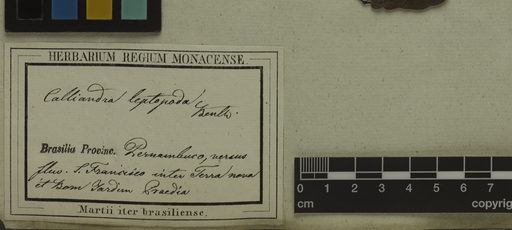 HERBARIUM REGIUM MONACENSE.
Calliandra leptopoda
Benth.
Brasilia Provinc. Pernambuco, versus
fluv. S. Francisco inter Terra nova
et Bom Jardim Praedia
Martii iter brasiliense.
0 1 2 3 4 5 6 7
cm copyrig